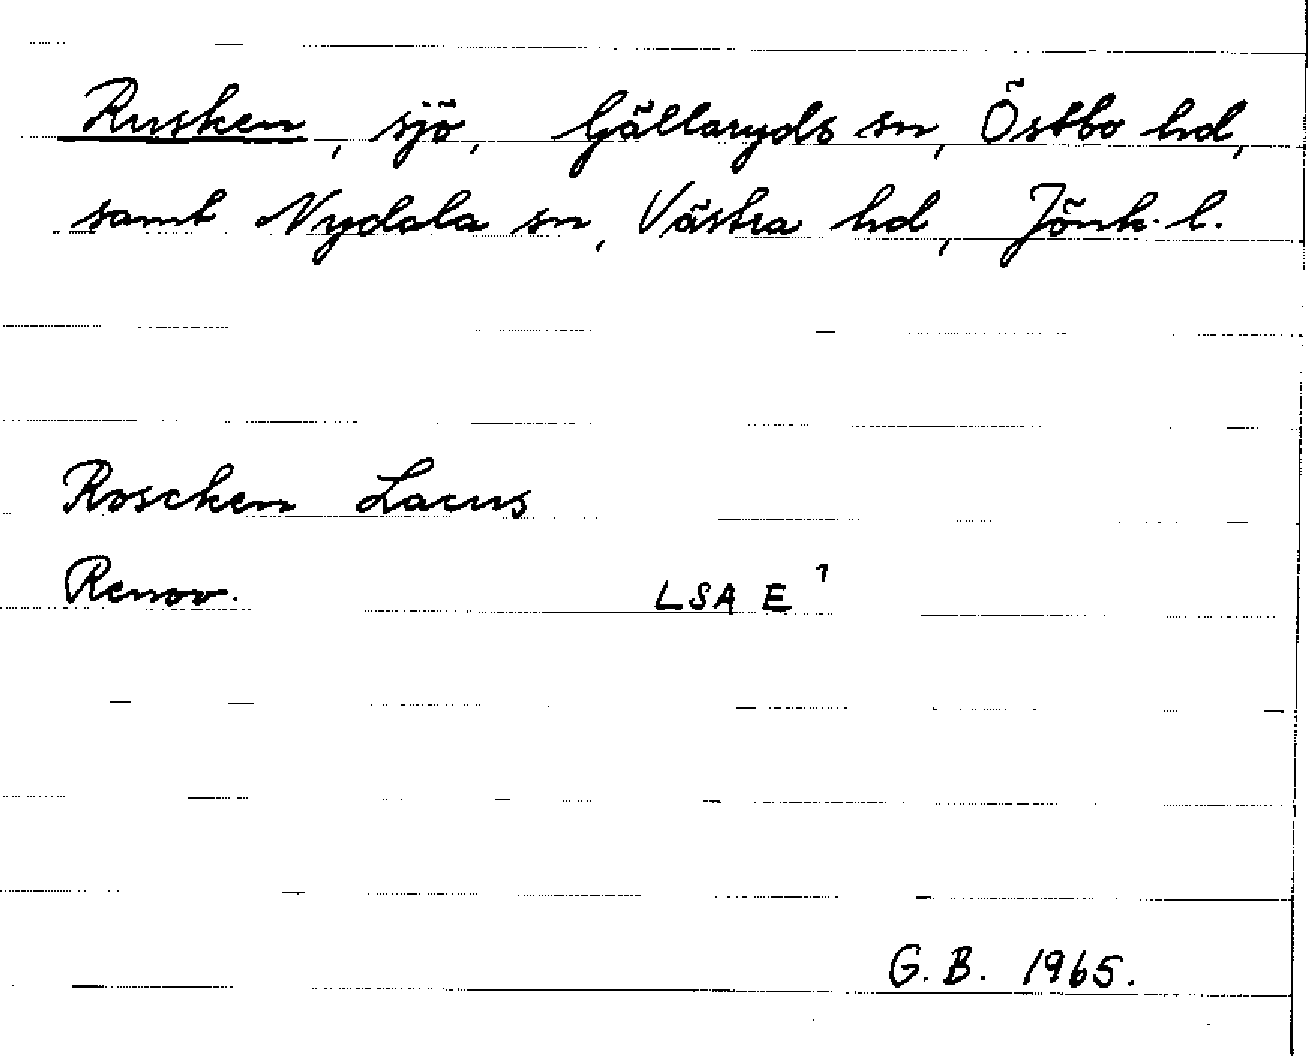 Rusken, sjö, Gällaryds sn, Östbo hd,
samt Nydala sn, Västra hd, Jönk. l.
Roscken Lacus
Renov. LSA E¹
G. B. 1965.